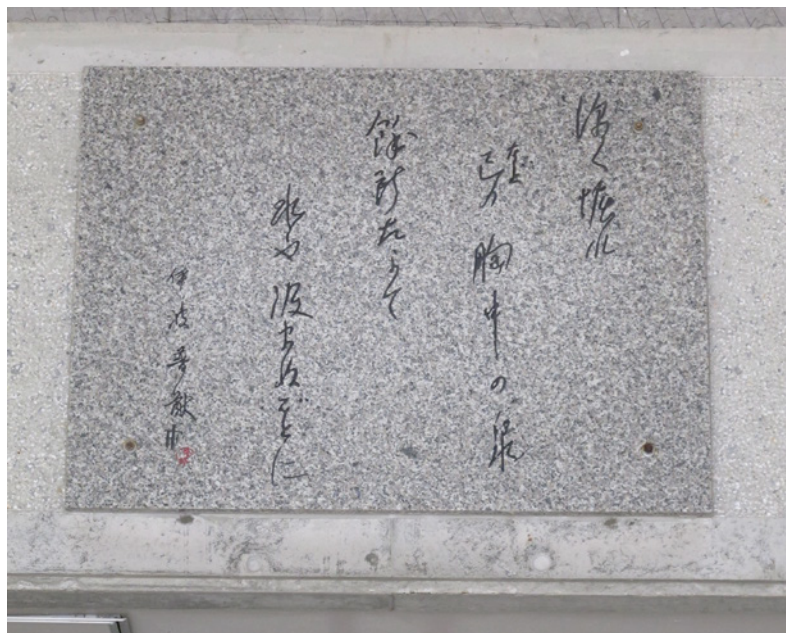 深く掘れ
己が胸中の泉
餘所たよて
水や汲まぬごとに
伊波普猷